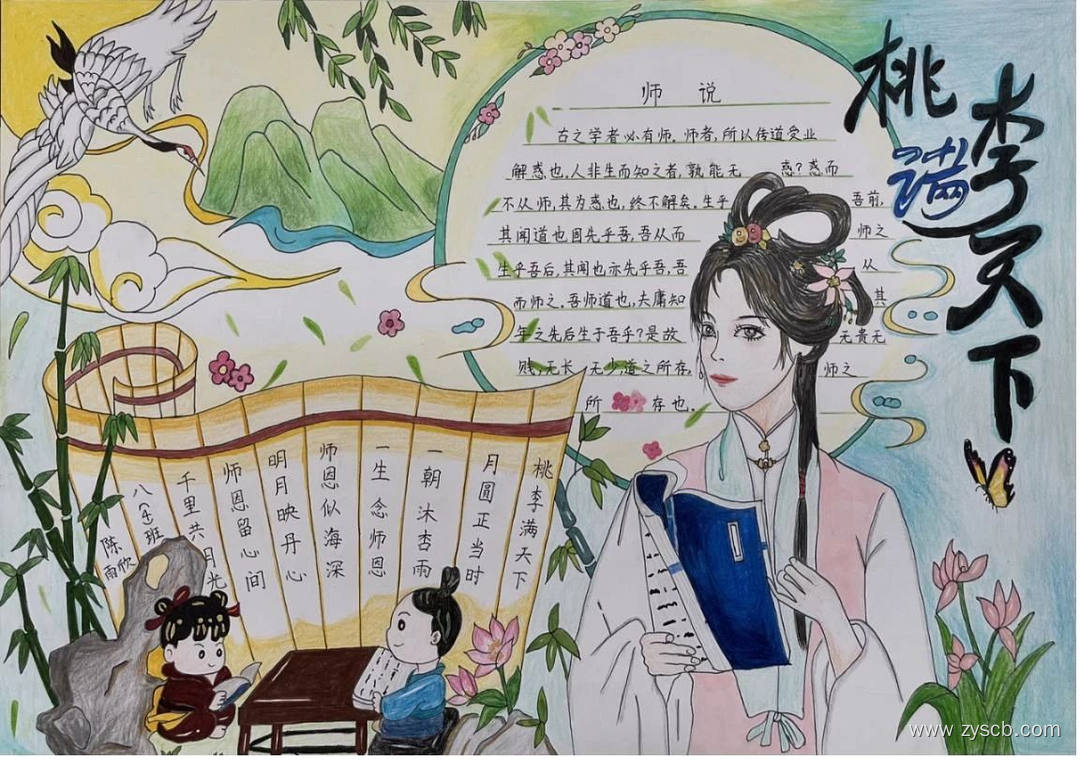 桃李满天下
师 说
古之学者必有师。师者,所以传道受业
解惑也。人非生而知之者,孰能无 惑?惑而
不从师,其为惑也,终不解矣。生乎 吾前,
其闻道也固先乎吾,吾从而 师之
生乎吾后,其闻也亦先乎吾,吾 从
而师之。吾师道也,夫庸知 其
年之先后生于吾乎?是故 无贵无
贱,无长 无少,道之所存, 师之
所 存也。
桃李满天下
月圆正当时
一朝沐杏雨
一生念师恩
师恩似海深
明月映丹心
师恩留心间
千里共月光
八( )班
陈雨欣
www.zyscb.com